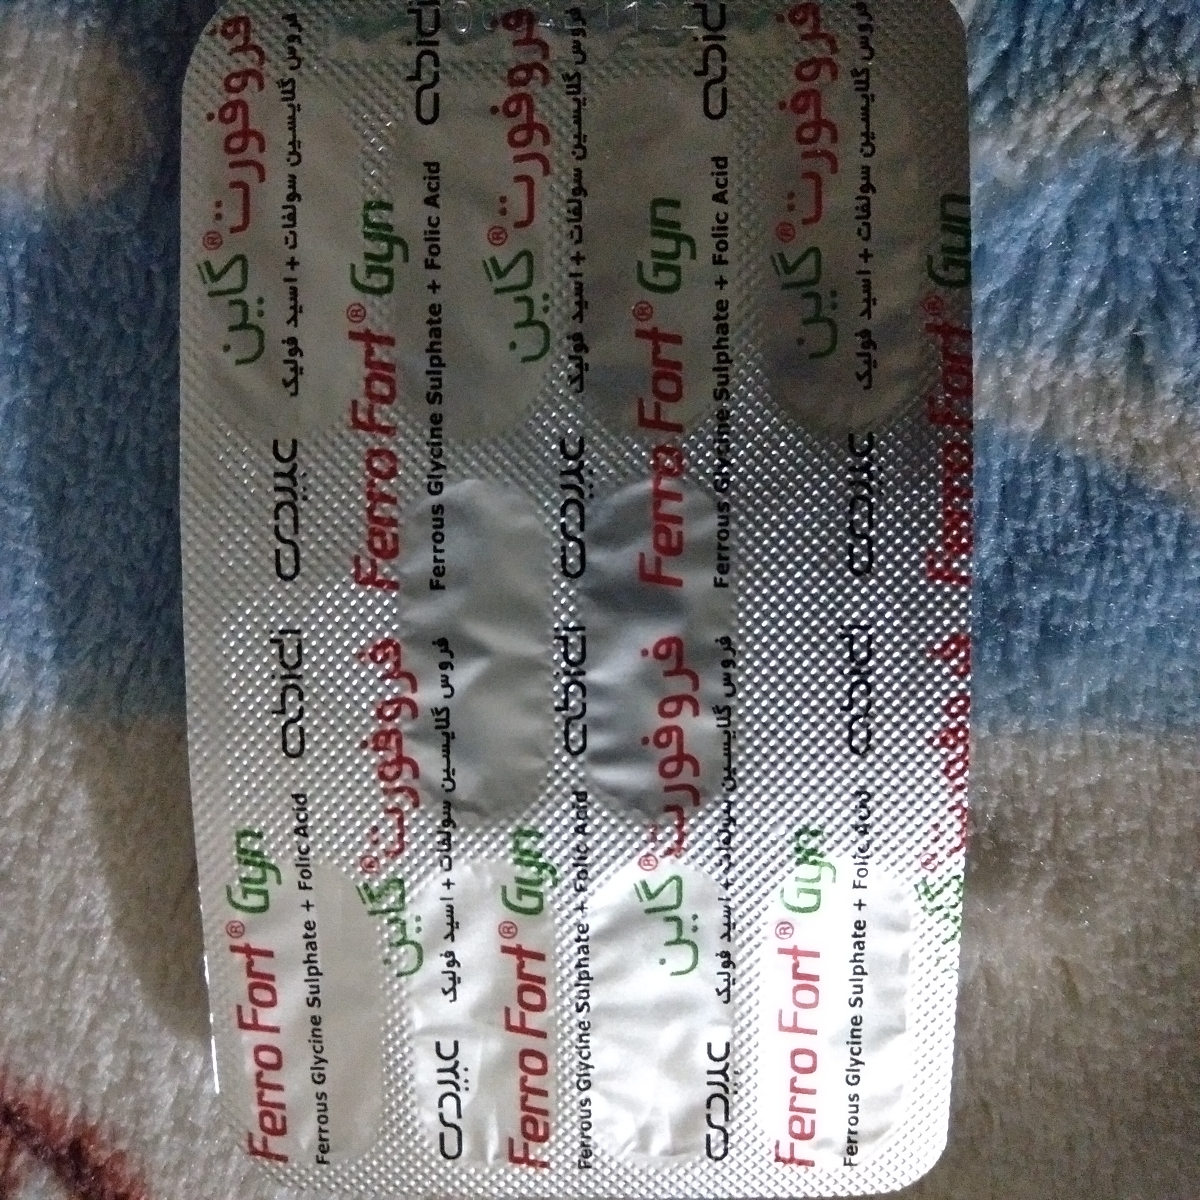 فروفورت® گاین
فروس گلایسین سولفات + اسید فولیک
عبیدی
abidi
Ferro Fort® Gyn
Ferrous Glycine Sulphate + Folic Acid
abidi
Ferro Fort® Gyn
Ferrous Glycine Sulphate + Folic Acid
فروفورت® گاین
فروس گلایسین سولفات + اسید فولیک
عبیدی
فروفورت® گاین
فروس گلایسین سولفات + اسید فولیک
عبیدی
abidi
Ferro Fort® Gyn
Ferrous Glycine Sulphate + Folic Acid
abidi
Ferro Fort® Gyn
Ferrous Glycine Sulphate + Folic Acid
فروفورت® گاین
فروس گلایسین سولفات + اسید فولیک
عبیدی
فروفورت® گاین
فروس گلایسین سولفات + اسید فولیک
عبیدی
abidi
Ferro Fort® Gyn
Ferrous Glycine Sulphate + Folic Acid
Ferro Fort® Gyn